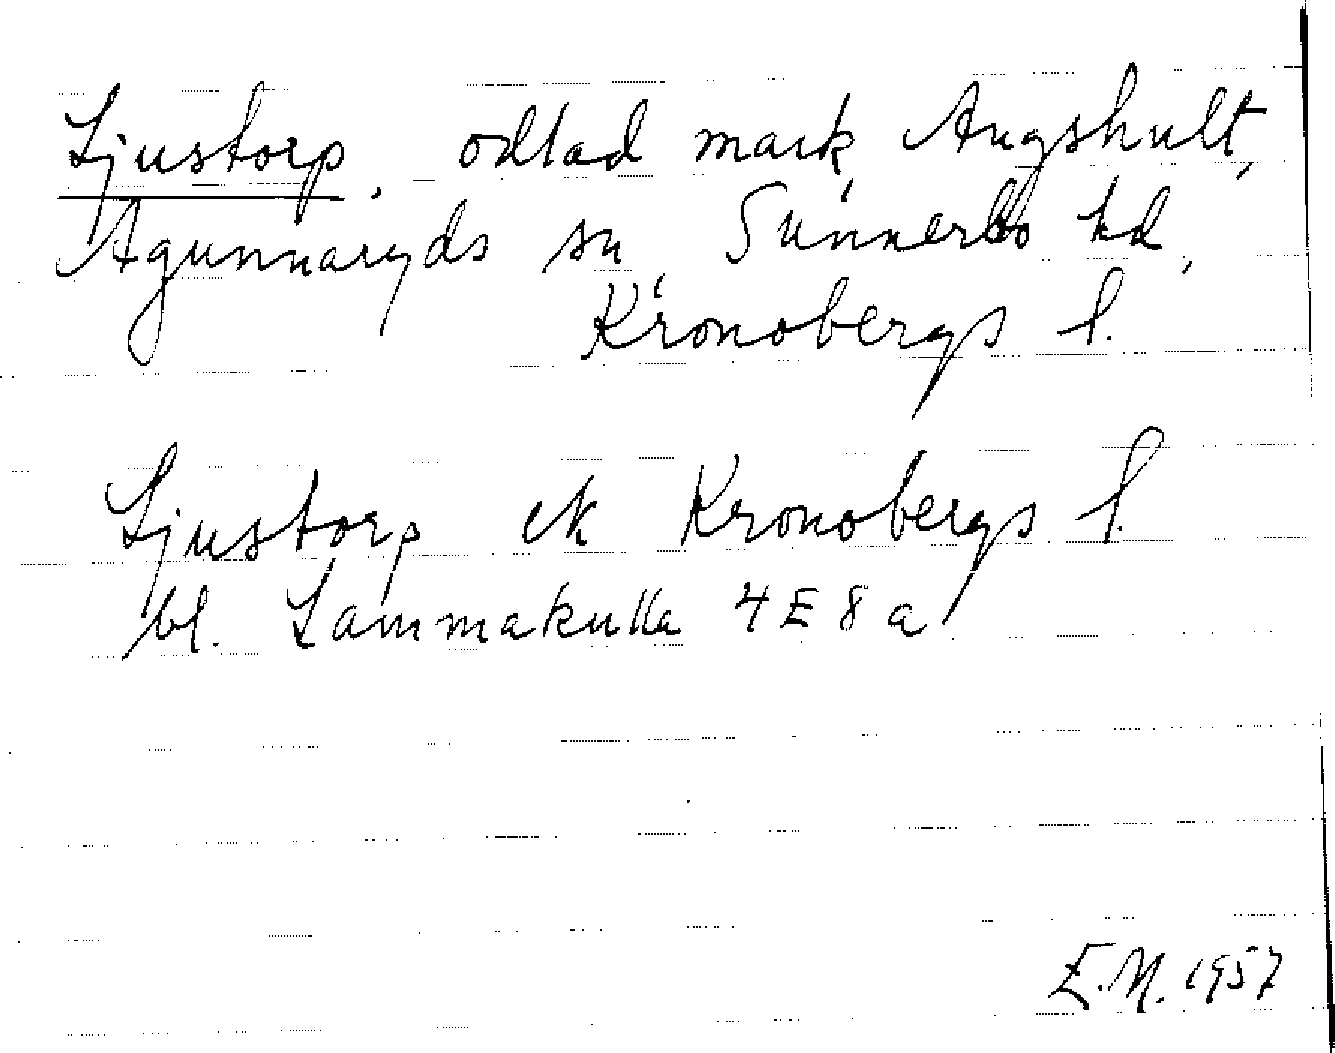 Ljustorp, odlad mark, Augshult,
Agunnaryds sn, Sunnerbo hd,
Kronobergs l.
Ljustorp ek Kronobergs l.
bl. Lammakulla 4E8a
E.N. 1957